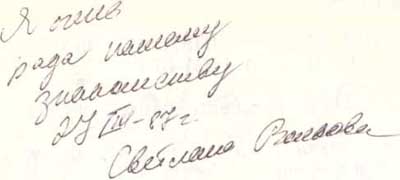 Я очень
рада нашему
знакомству
27 IV-87г.
Светлана